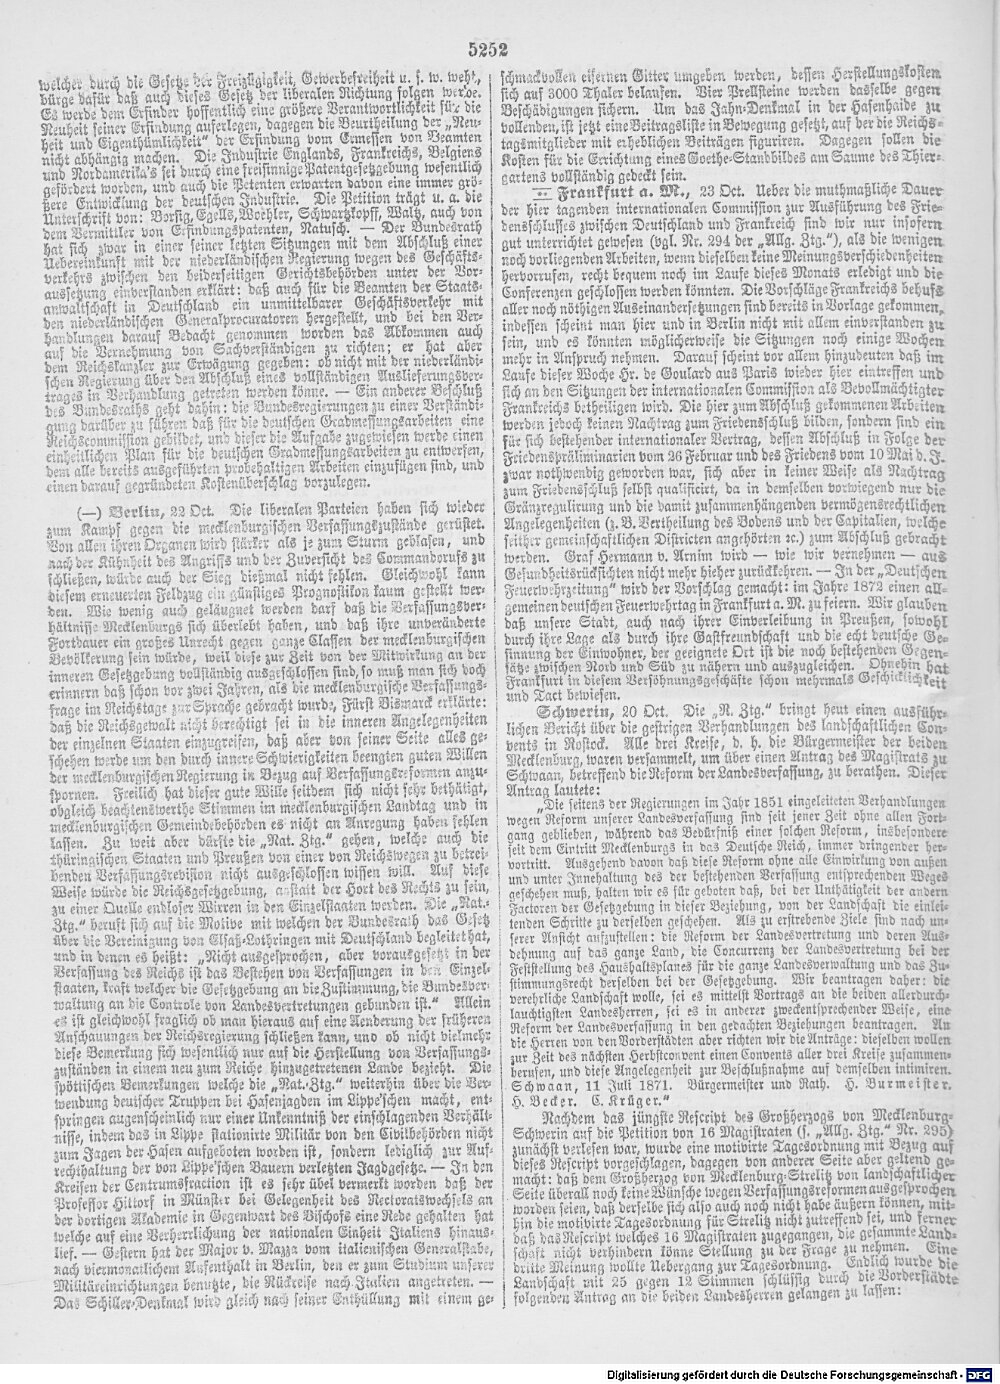 5252
welcher durch die Gesetze der Freizügigkeit, Gewerbefreiheit u. s. w. weht,
bürge dafür daß auch dieses Gesetz der liberalen Richtung folgen werde.
Es werde dem Erfinder hoffentlich eine größere Verantwortlichkeit für die
Neuheit seiner Erfindung auferlegen, dagegen die Beurtheilung der „Neu-
heit und Eigenthümlichkeit“ der Erfindung vom Ermessen von Beamten
nicht abhängig machen. Die Industrie Englands, Frankreichs, Belgiens
und Nordamerika's sei durch eine freisinnige Patentgesetzgebung wesentlich
gefördert worden, und auch die Petenten erwarten davon eine immer grö-
ßere Entwicklung der deutschen Industrie. Die Petition trägt u. a. die
Unterschrift von: Borsig, Egells, Woehler, Schwartzkopff, Waltz, auch von
dem Vermittler von Erfindungspatenten, Natusch. — Der Bundesrath
hat sich zwar in einer seiner letzten Sitzungen mit dem Abschluß einer
Uebereinkunft mit der niederländischen Regierung wegen des Geschäfts-
verkehrs zwischen den beiderseitigen Gerichtsbehörden unter der Vor-
aussetzung einverstanden erklärt: daß auch für die Beamten der Staats-
anwaltschaft in Deutschland ein unmittelbarer Geschäftsverkehr mit
den niederländischen Generalprocuratoren hergestellt, und bei den Ver-
handlungen darauf Bedacht genommen worden das Abkommen auch
auf die Vernehmung von Sachverständigen zu richten; er hat aber
dem Reichskanzler zur Erwägung gegeben: ob nicht mit der niederländi-
schen Regierung über den Abschluß eines vollständigen Auslieferungsver-
trages in Verhandlung getreten werden könne. — Ein anderer Beschluß
des Bundesraths geht dahin: die Bundesregierungen zu einer Verständi-
gung darüber zu führen daß für die deutschen Gradmessungsarbeiten eine
Reichscommission gebildet, und dieser die Aufgabe zugewiesen werde einen
einheitlichen Plan für die deutschen Gradmessungsarbeiten zu entwerfen,
dem alle bereits ausgeführten probehaltigen Arbeiten einzufügen sind, und
einen darauf gegründeten Kostenüberschlag vorzulegen.
(—) Berlin, 22 Oct. Die liberalen Parteien haben sich wieder
zum Kampf gegen die mecklenburgischen Verfassungszustände gerüstet.
Von allen ihren Organen wird stärker als je zum Sturm geblasen, und
nach der Kühnheit des Angriffs und der Zuversicht des Commandorufs zu
schließen, würde auch der Sieg dießmal nicht fehlen. Gleichwohl kann
diesem erneuerten Feldzug ein günstiges Prognostikon kaum gestellt wer-
den. Wie wenig auch geläugnet werden darf daß die Verfassungsver-
hältnisse Mecklenburgs sich überlebt haben, und daß ihre unveränderte
Fortdauer ein großes Unrecht gegen ganze Classen der mecklenburgischen
Bevölkerung sein würde, weil diese zur Zeit von der Mitwirkung an der
inneren Gesetzgebung vollständig ausgeschlossen sind, so muß man sich doch
erinnern daß schon vor zwei Jahren, als die mecklenburgische Verfassungs-
frage im Reichstage zur Sprache gebracht wurde, Fürst Bismarck erklärte:
daß die Reichsgewalt nicht berechtigt sei in die inneren Angelegenheiten
der einzelnen Staaten einzugreifen, daß aber von seiner Seite alles ge-
schehen werde um den durch innere Schwierigkeiten beengten guten Willen
der mecklenburgischen Regierung in Bezug auf Verfassungsreformen anzu-
spornen. Freilich hat dieser gute Wille seitdem sich nicht sehr bethätigt,
obgleich beachtenswerthe Stimmen im mecklenburgischen Landtag und in
mecklenburgischen Gemeindebehörden es nicht an Anregung haben fehlen
lassen. Zu weit aber dürfte die „Nat. Ztg.“ gehen, welche auch die
thüringischen Staaten und Preußen von einer von Reichswegen zu betrei-
benden Verfassungsrevision nicht ausgeschlossen wissen will. Auf diese
Weise würde die Reichsgesetzgebung, anstatt der Hort des Rechts zu sein,
zu einer Quelle endloser Wirren in den Einzelstaaten werden. Die „Nat.-
Ztg.“ beruft sich auf die Motive mit welchen der Bundesrath das Gesetz
über die Vereinigung von Elsaß-Lothringen mit Deutschland begleitet hat,
und in denen es heißt: „Nicht ausgesprochen, aber vorausgesetzt in der
Verfassung des Reichs ist das Bestehen von Verfassungen in den Einzel-
staaten, kraft welcher die Gesetzgebung an die Zustimmung, die Bundesver-
waltung an die Controle von Landesvertretungen gebunden ist.“ Allein
es ist gleichwohl fraglich ob man hieraus auf eine Aenderung der früheren
Anschauungen der Reichsregierung schließen kann, und ob nicht vielmehr
diese Bemerkung sich wesentlich nur auf die Herstellung von Verfassungs-
zuständen in einem neu zum Reiche hinzugetretenen Lande bezieht. Die
spöttischen Bemerkungen welche die „Nat.-Ztg.“ weiterhin über die Ver-
wendung deutscher Truppen bei Hasenjagden im Lippe'schen macht, ent-
springen augenscheinlich nur einer Unkenntniß der einschlagenden Verhält-
nisse, indem das in Lippe stationirte Militär von den Civilbehörden nicht
zum Jagen der Hasen aufgeboten worden ist, sondern lediglich zur Auf-
rechthaltung der von Lippe'schen Bauern verletzten Jagdgesetze. — In den
Kreisen der Centrumsfraction ist es sehr übel vermerkt worden daß der
Professor Hittorf in Münster bei Gelegenheit des Rectoratswechsels an
der dortigen Akademie in Gegenwart des Bischofs eine Rede gehalten hat
welche auf eine Verherrlichung der nationalen Einheit Italiens hinaus-
lief. — Gestern hat der Major v. Mazza vom italienischen Generalstabe,
nach viermonatlichem Aufenthalt in Berlin, den er zum Studium unserer
Militäreinrichtungen benutzte, die Rückreise nach Italien angetreten. —
Das Schiller-Denkmal wird gleich nach seiner Enthüllung mit einem ge-
schmackvollen eisernen Gitter umgeben werden, dessen Herstellungskosten
sich auf 3000 Thaler belaufen. Vier Prellsteine werden dasselbe gegen
Beschädigungen sichern. Um das Jahn-Denkmal in der Hasenhaide zu
vollenden, ist jetzt eine Beitragsliste in Bewegung gesetzt, auf der die Reichs-
tagsmitglieder mit erheblichen Beiträgen figuriren. Dagegen sollen die
Kosten für die Errichtung eines Goethe-Standbildes am Saume des Thier-
gartens vollständig gedeckt sein.
Frankfurt a. M., 23 Oct. Ueber die muthmaßliche Dauer
der hier tagenden internationalen Commission zur Ausführung des Frie-
densschlusses zwischen Deutschland und Frankreich sind wir nur insofern
gut unterrichtet gewesen (vgl. Nr. 294 der „Allg. Ztg.“), als die wenigen
noch vorliegenden Arbeiten, wenn dieselben keine Meinungsverschiedenheiten
hervorrufen, recht bequem noch im Laufe dieses Monats erledigt und die
Conferenzen geschlossen werden könnten. Die Vorschläge Frankreichs behufs
aller noch nöthigen Auseinandersetzungen sind bereits in Vorlage gekommen,
indessen scheint man hier und in Berlin nicht mit allem einverstanden zu
sein, und es könnten möglicherweise die Sitzungen noch einige Wochen
mehr in Anspruch nehmen. Darauf scheint vor allem hinzudeuten daß im
Laufe dieser Woche Hr. de Goulard aus Paris wieder hier eintreffen und
sich an den Sitzungen der internationalen Commission als Bevollmächtigter
Frankreichs betheiligen wird. Die hier zum Abschluß gekommenen Arbeiten
werden jedoch keinen Nachtrag zum Friedensschluß bilden, sondern sind ein
für sich bestehender internationaler Vertrag, dessen Abschluß in Folge der
Friedenspräliminarien vom 26 Februar und des Friedens vom 10 Mai d. J.
zwar nothwendig geworden war, sich aber in keiner Weise als Nachtrag
zum Friedensschluß selbst qualificirt, da in demselben vorwiegend nur die
Gränzregulirung und die damit zusammenhängenden vermögensrechtlichen
Angelegenheiten (z. B. Vertheilung des Bodens und der Capitalien, welche
seither gemeinschaftlichen Districten angehörten ꝛc.) zum Abschluß gebracht
werden. Graf Hermann v. Arnim wird — wie wir vernehmen — aus
Gesundheitsrücksichten nicht mehr hieher zurückkehren. — In der „Deutschen
Feuerwehrzeitung“ wird der Vorschlag gemacht: im Jahre 1872 einen all-
gemeinen deutschen Feuerwehrtag in Frankfurt a. M. zu feiern. Wir glauben
daß unsere Stadt, auch nach ihrer Einverleibung in Preußen, sowohl
durch ihre Lage als durch ihre Gastfreundschaft und die echt deutsche Ge-
sinnung der Einwohner, der geeignete Ort ist die noch bestehenden Gegen-
sätze zwischen Nord und Süd zu nähern und auszugleichen. Ohnehin hat
Frankfurt in diesem Versöhnungsgeschäfte schon mehrmals Geschicklichkeit
und Tact bewiesen.
Schwerin, 20 Oct. Die „R. Ztg.“ bringt heut einen ausführ-
lichen Bericht über die gestrigen Verhandlungen des landschaftlichen Con-
vents in Rostock. Alle drei Kreise, d. h. die Bürgermeister der beiden
Mecklenburg, waren versammelt, um über einen Antrag des Magistrats zu
Schwaan, betreffend die Reform der Landesverfassung, zu berathen. Dieser
Antrag lautete:
„Die seitens der Regierungen im Jahr 1851 eingeleiteten Verhandlungen
wegen Reform unserer Landesverfassung sind seit jener Zeit ohne allen Fort-
gang geblieben, während das Bedürfniß einer solchen Reform, insbesondere
seit dem Eintritt Mecklenburgs in das Deutsche Reich, immer dringender her-
vortritt. Ausgehend davon daß diese Reform ohne alle Einwirkung von außen
und unter Innehaltung des der bestehenden Verfassung entsprechenden Weges
geschehen muß, halten wir es für geboten daß, bei der Unthätigkeit der andern
Factoren der Gesetzgebung in dieser Beziehung, von der Landschaft die einlei-
tenden Schritte zu derselben geschehen. Als zu erstrebende Ziele sind nach un-
serer Ansicht aufzustellen: die Reform der Landesvertretung und deren Aus-
dehnung auf das ganze Land, die Concurrenz der Landesvertretung bei der
Feststellung des Haushaltsplanes für die ganze Landesverwaltung und das Zu-
stimmungsrecht derselben bei der Gesetzgebung. Wir beantragen daher: die
verehrliche Landschaft wolle, sei es mittelst Vortrags an die beiden allerdurch-
lauchtigsten Landesherren, sei es in anderer zweckentsprechender Weise, eine
Reform der Landesverfassung in den gedachten Beziehungen beantragen. An
die Herren von den Vorderstädten aber richten wir die Anträge: dieselben wollen
zur Zeit des nächsten Herbstconvent einen Convents aller drei Kreise zusammen-
berufen, und diese Angelegenheit zur Beschlußnahme auf demselben intimiren.
Schwaan, 11 Juli 1871. Bürgermeister und Rath. H. Burmeister.
H. Becker. C. Krüger.“
Nachdem das jüngste Rescript des Großherzogs von Mecklenburg-
Schwerin auf die Petition von 16 Magistraten (s. „Allg. Ztg.“ Nr. 295)
zunächst verlesen war, wurde eine motivirte Tagesordnung mit Bezug auf
dieses Rescript vorgeschlagen, dagegen von anderer Seite aber geltend ge-
macht: daß dem Großherzog von Mecklenburg-Strelitz von landschaftlicher
Seite überall noch keine Wünsche wegen Verfassungsreformen ausgesprochen
worden seien, daß derselbe sich also auch noch nicht habe äußern können, mit-
hin die motivirte Tagesordnung für Strelitz nicht zutreffend sei, und ferner
daß das Rescript welches 16 Magistraten zugegangen, die gesammte Land-
schaft nicht verhindern könne Stellung zu der Frage zu nehmen. Eine
dritte Meinung wollte Uebergang zur Tagesordnung. Endlich wurde die
Landschaft mit 25 gegen 12 Stimmen schlüssig durch die Vorderstädte
folgenden Antrag an die beiden Landesherren gelangen zu lassen:
Digitalisierung gefördert durch die Deutsche Forschungsgemeinschaft - DFG